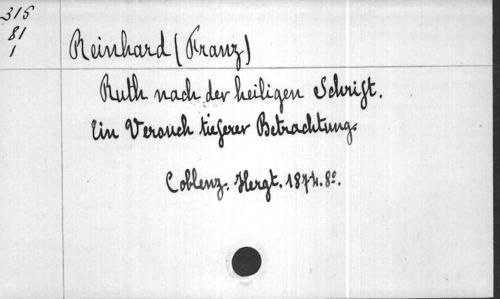 315
81
1
Reinhard (Franz)
Ruth nach der heiligen Schrift.
Ein Versuch tieferer Betrachtung.
Coblenz. Hergt. 1874. 8º.